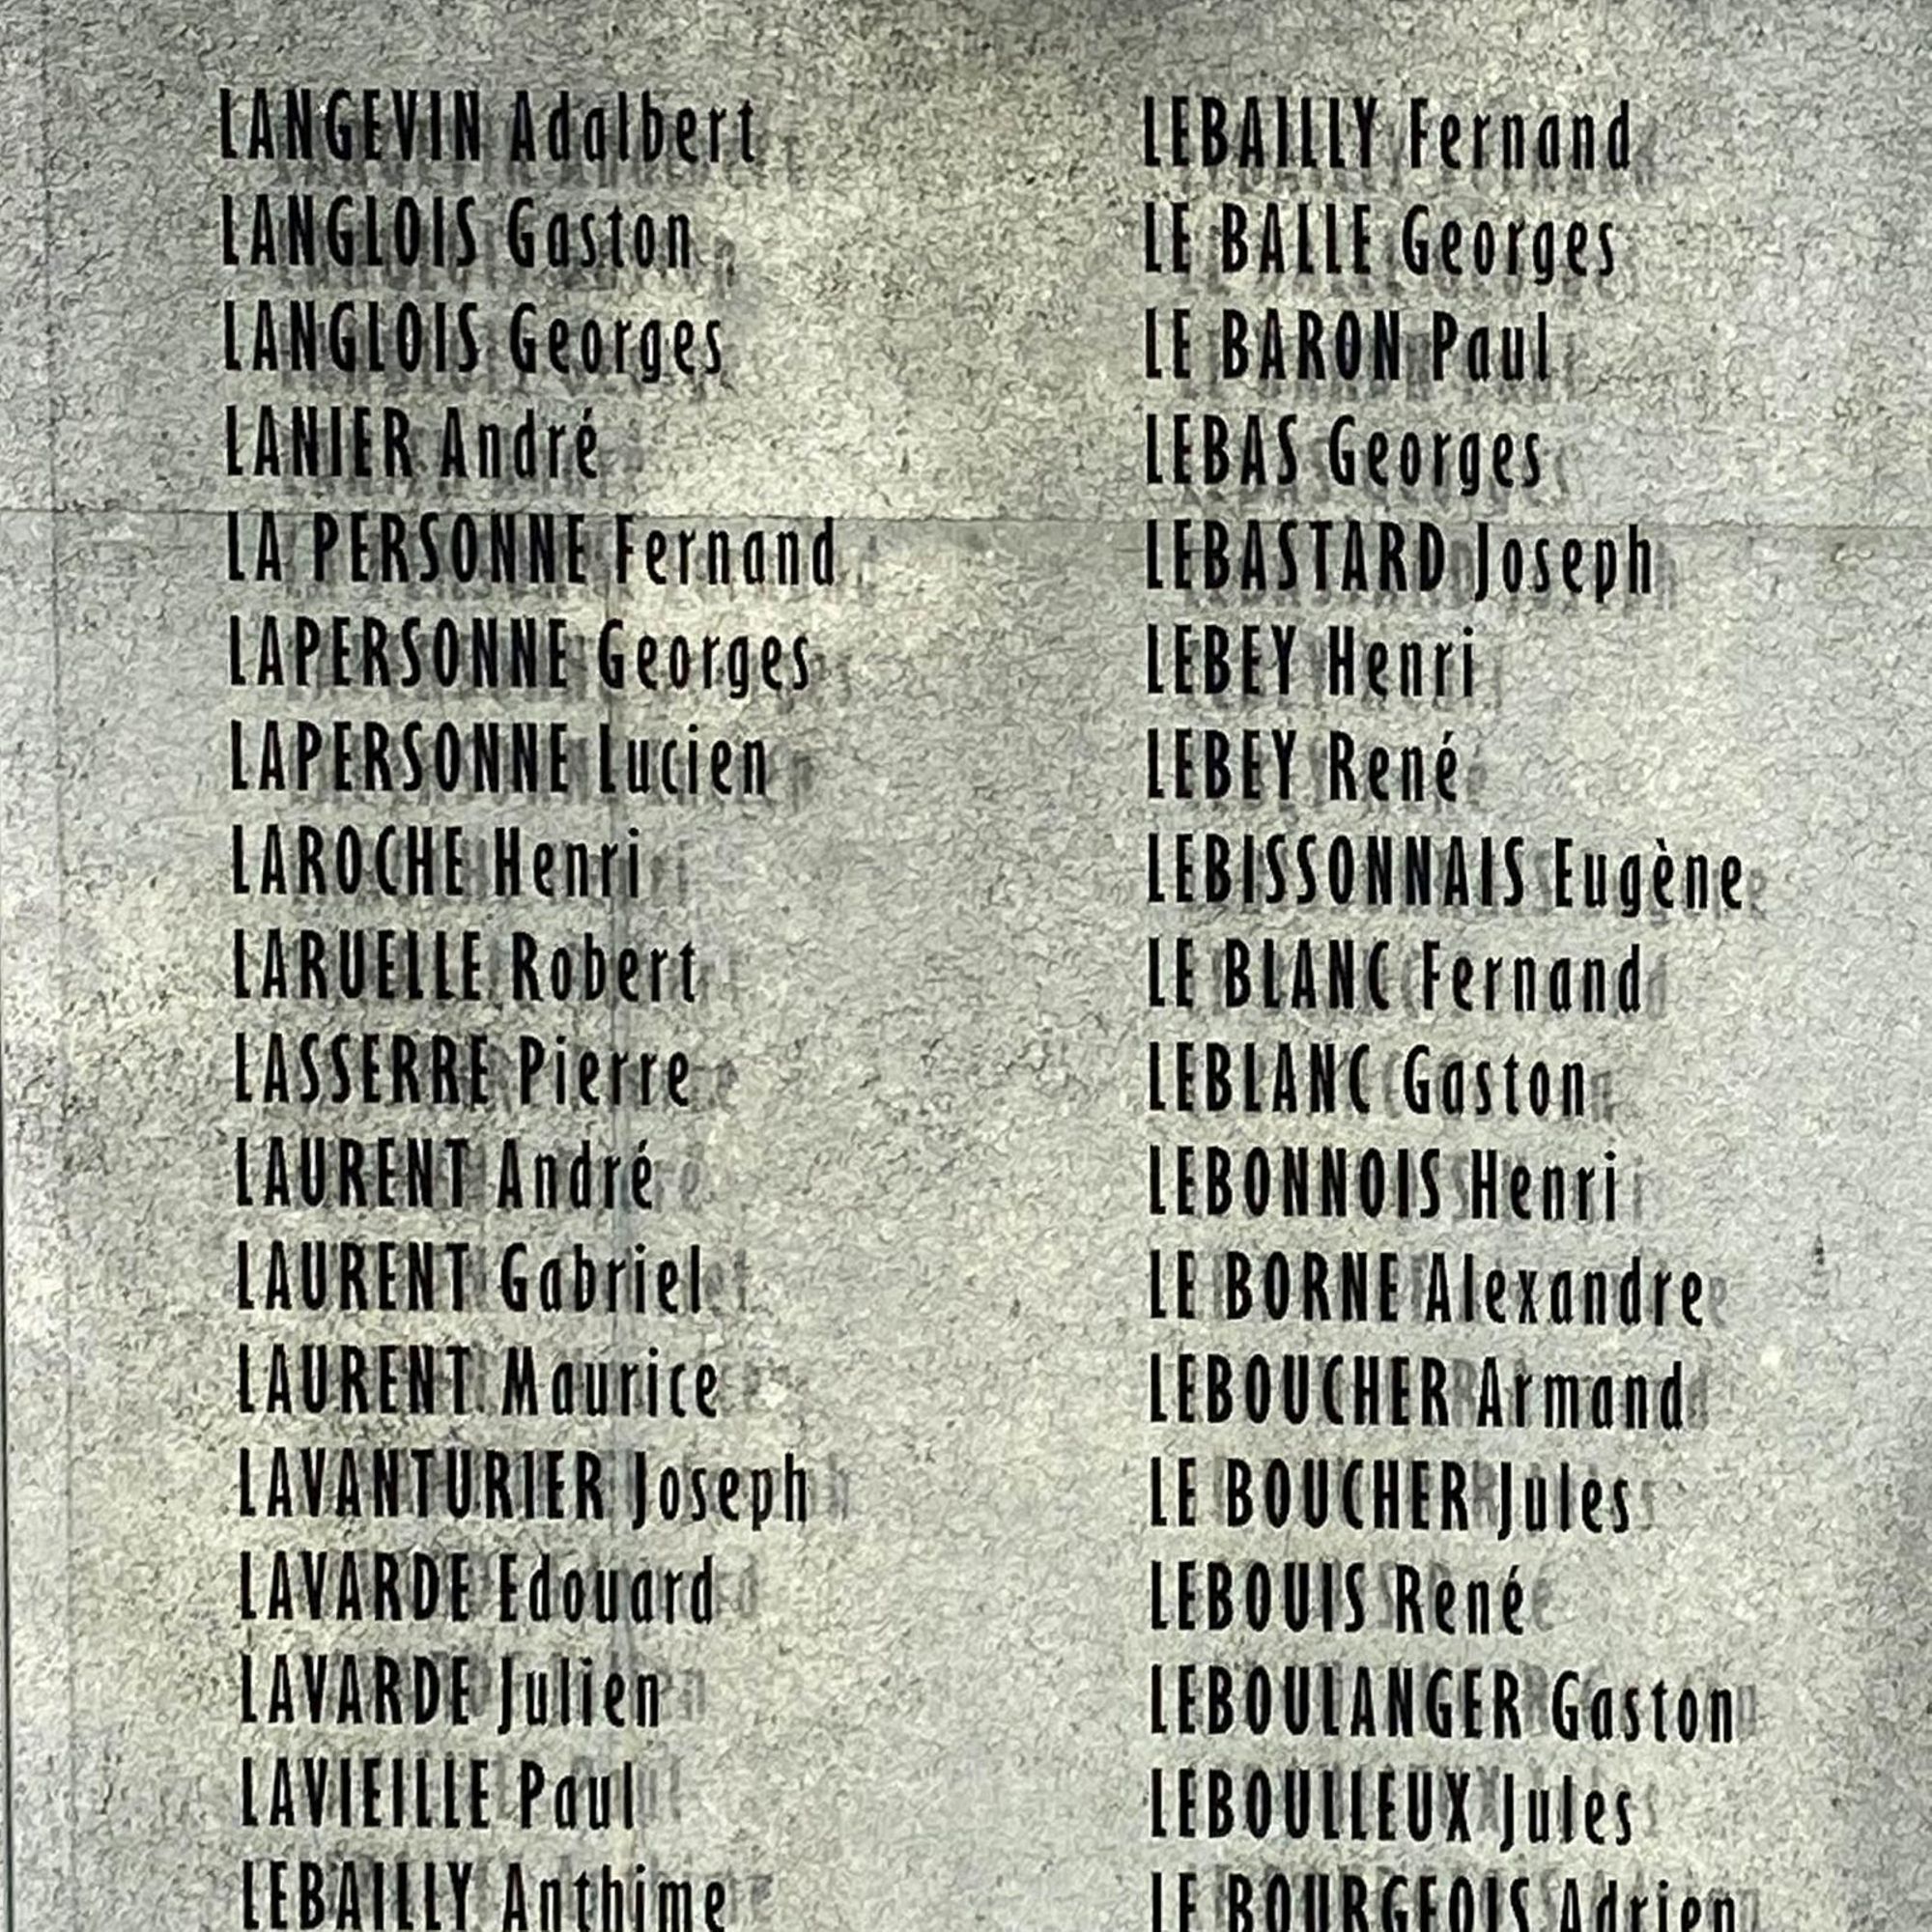 LANGEVIN Adalbert
LANGLOIS Gaston
LANGLOIS Georges
LANIER André
LA PERSONNE Fernand
LAPERSONNE Georges
LAPERSONNE Lucien
LAROCHE Henri
LARUELLE Robert
LASSERRE Pierre
LAURENT André
LAURENT Gabriel
LAURENT Maurice
LAVANTURIER Joseph
LAVARDE Edouard
LAVARDE Julien
LAVIEILLE Paul
LEBAILLY Anthime
LEBAILLY Fernand
LE BALLE Georges
LE BARON Paul
LEBAS Georges
LEBASTARD Joseph
LEBEY Henri
LEBEY René
LEBISSONNAIS Eugène
LE BLANC Fernand
LEBLANC Gaston
LEBONNOIS Henri
LE BORNE Alexandre
LEBOUCHER Armand
LE BOUCHER Jules
LEBOUIS René
LEBOULANGER Gaston
LEBOULLEUX Jules
LE BOURGEOIS Adrien